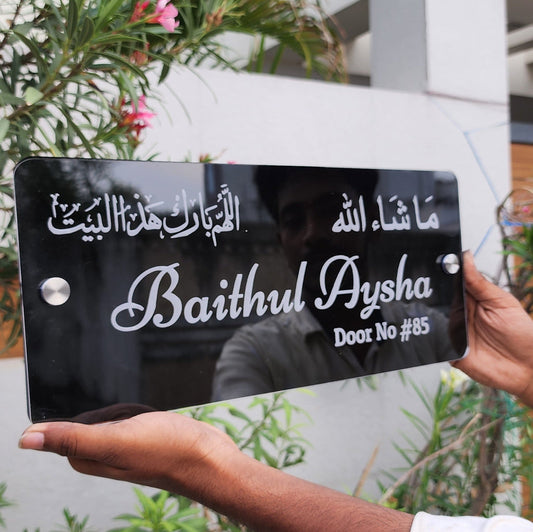 اللهم بارك هذا البيت
ما شاء الله
Baithul Aysha
Door No #85